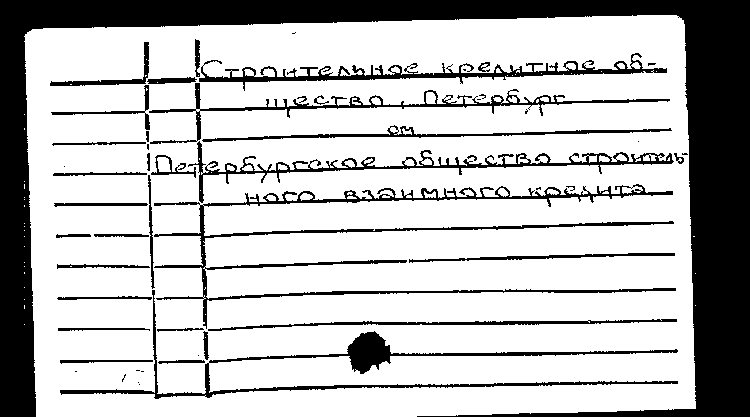 Строительное кредитное об-
щество, Петербург
см.
Петербургское общество строитель-
ного взаимного кредита